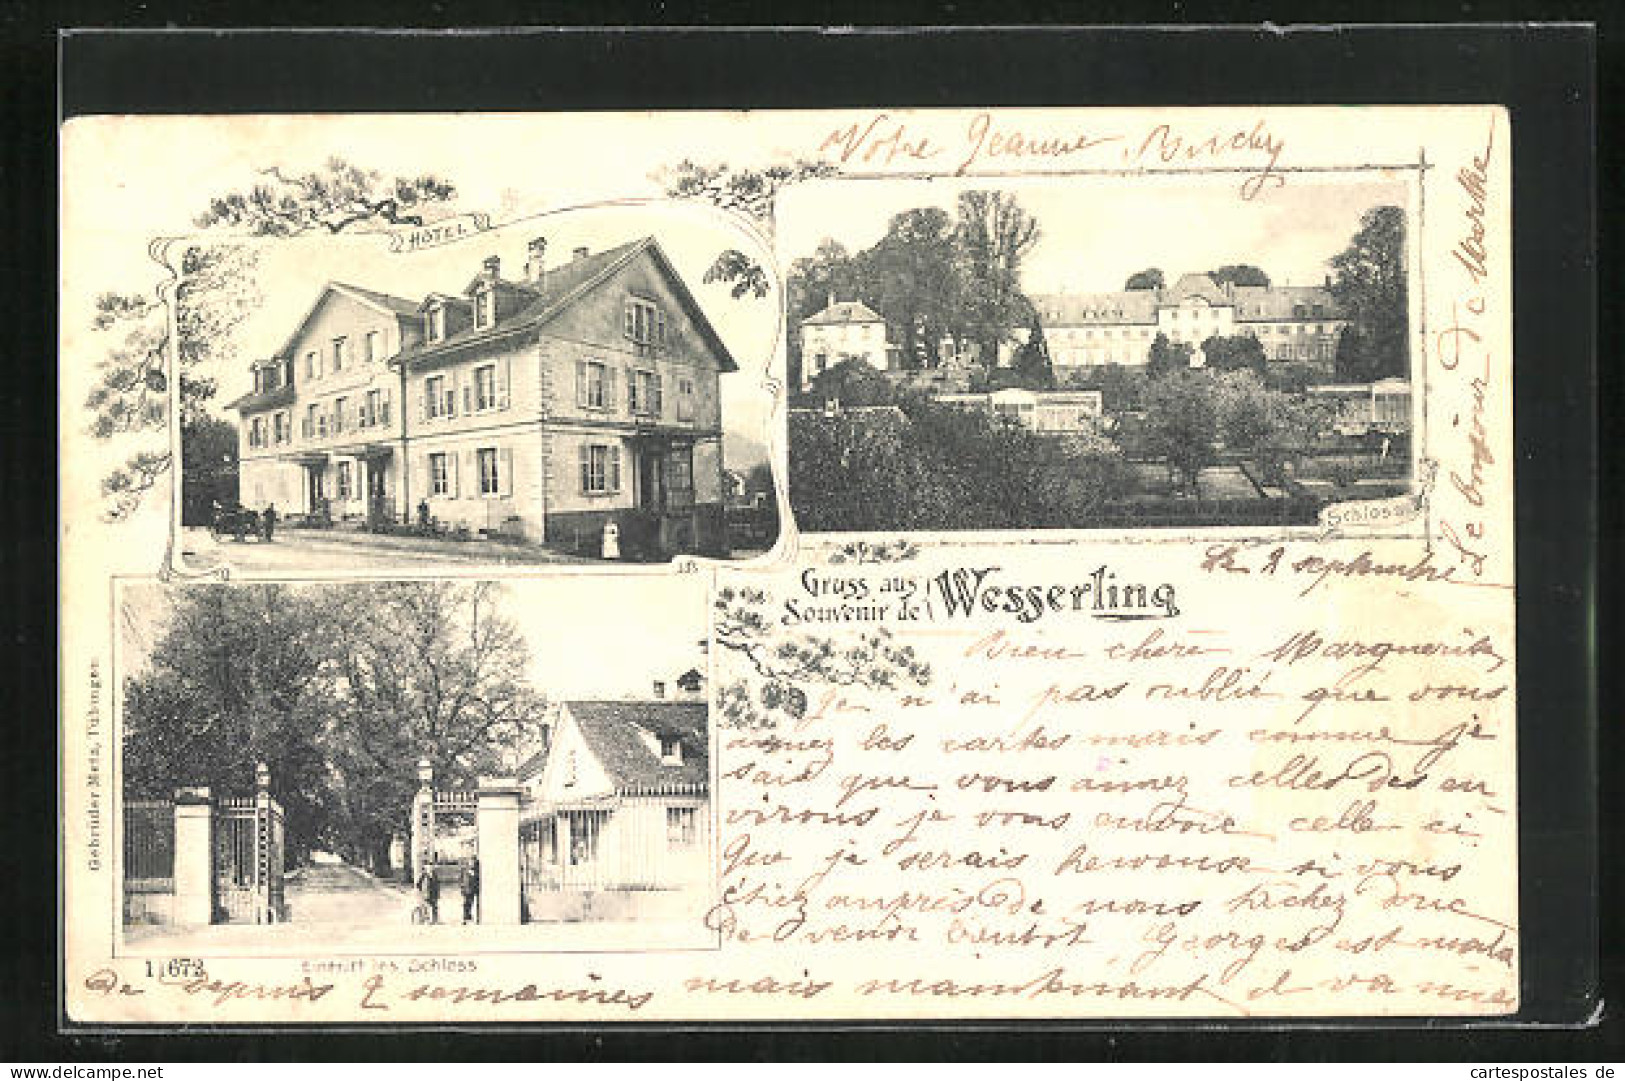 Votre Jeanne
HOTEL
Schloss
Le bonjour de Marthe
Gruss aus
Souvenir de
Wesserling
Le 2 septembre
Bien chère Marguerite,
Je n'ai pas oublié que vous
aimez les cartes mais comme je
sais que vous aimez celles des en
virons je vous envoie celle ci
Que je serais heureuse si vous
étiez auprès de nous tachez donc
de venir bientot Georges est mala
de depuis 2 semaines mais maintenant il va mieu
Gebrüder Metz, Tübingen
11672
Eintritt ins Schloss
cartespostales de